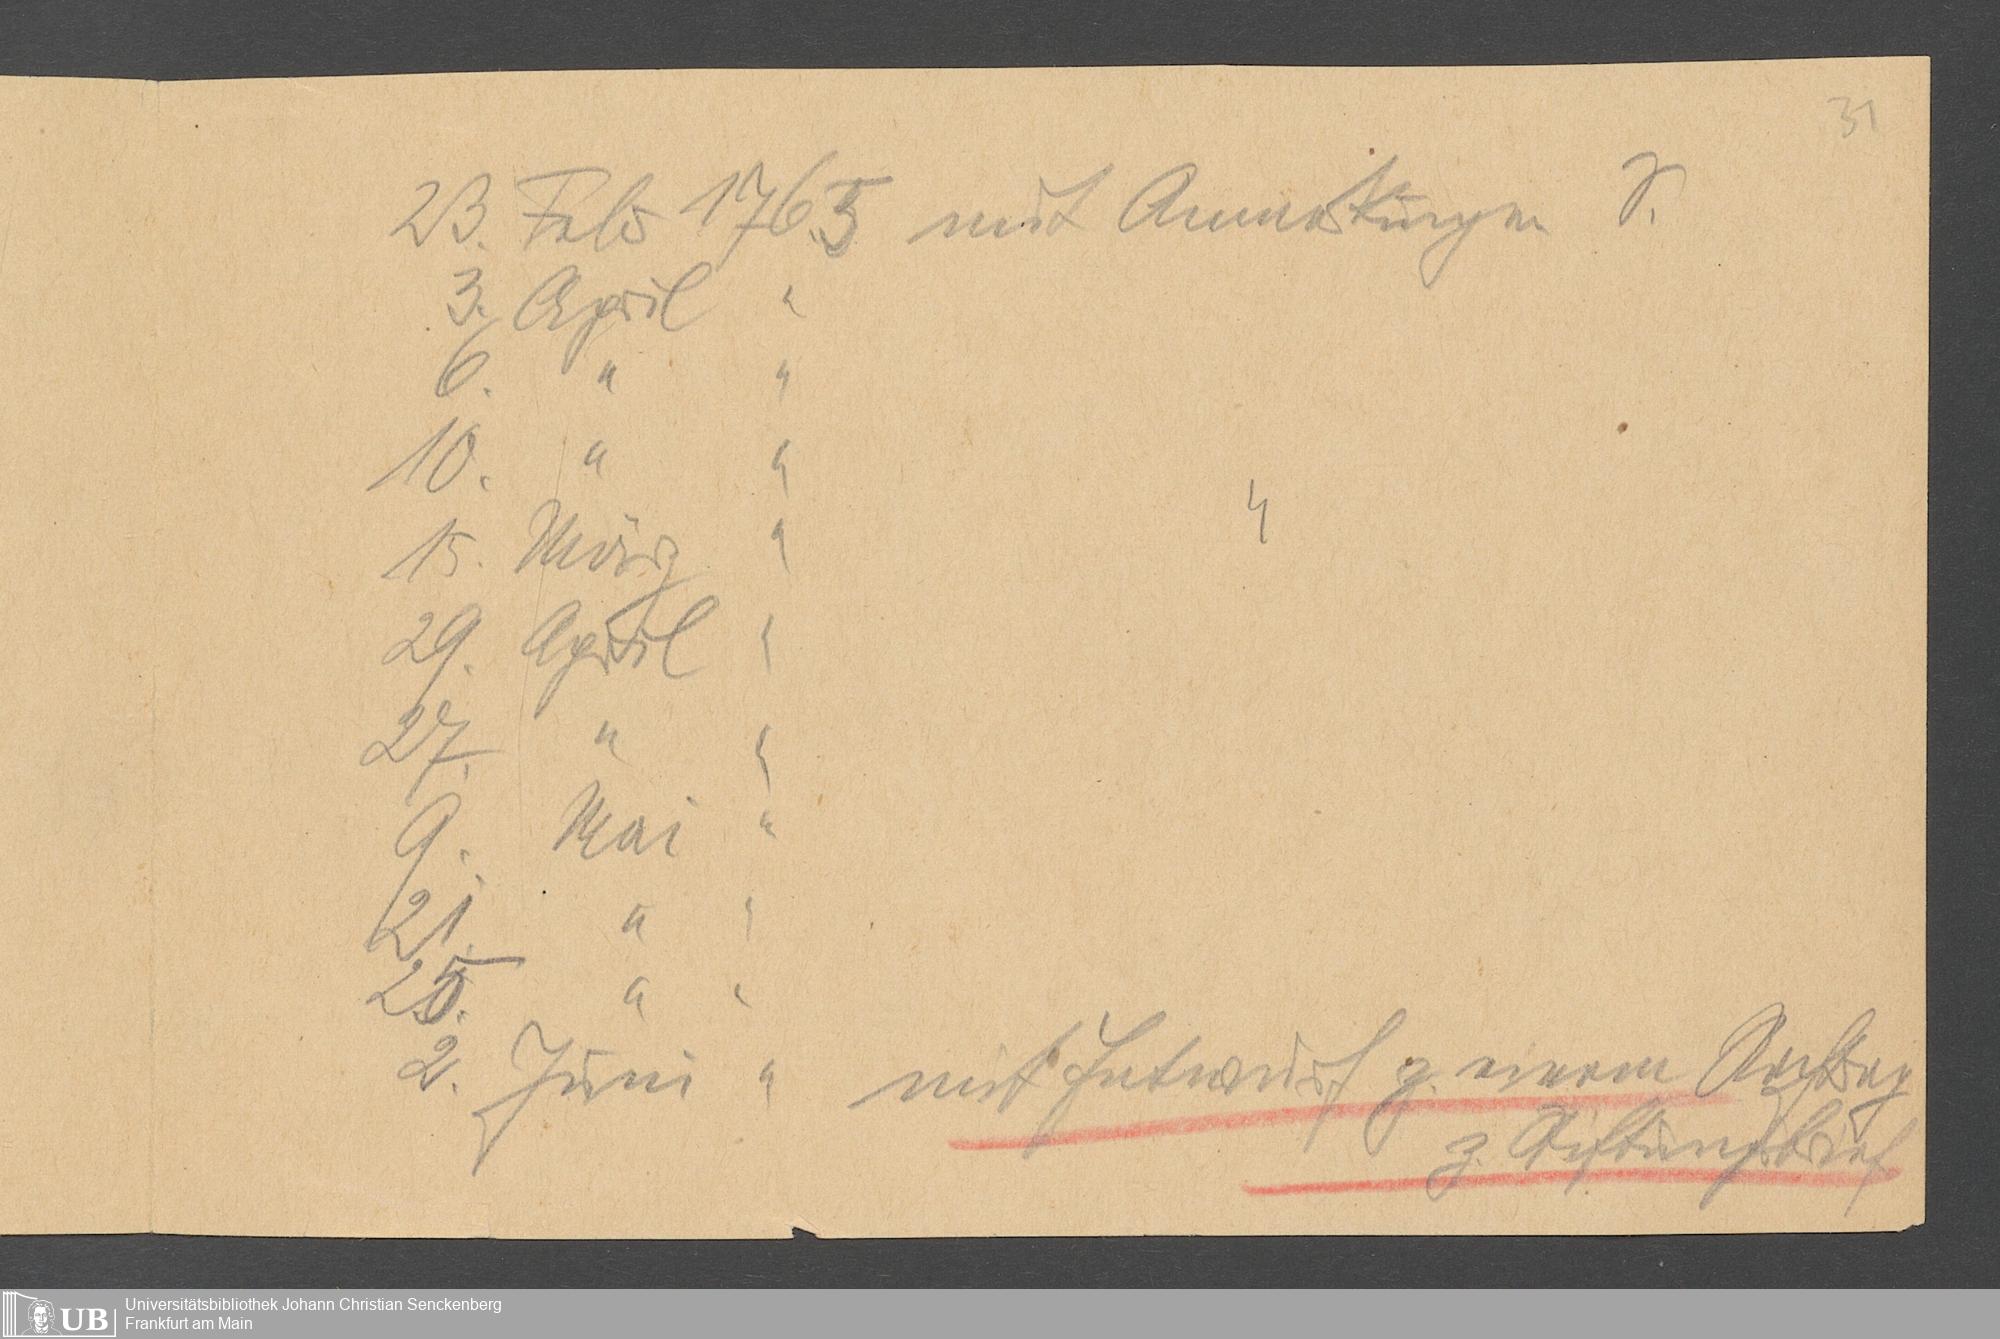 31
23. Feb 1765 mit Anmerkungen S.
3. April "
6. " "
10. " "
15. März "
29. April "
27. " "
9. Mai "
21. " "
25. " "
2. Juni " mit Entwurf z. einem
z. Stiftungsbrief
UB
Universitätsbibliothek Johann Christian Senckenberg
Frankfurt am Main